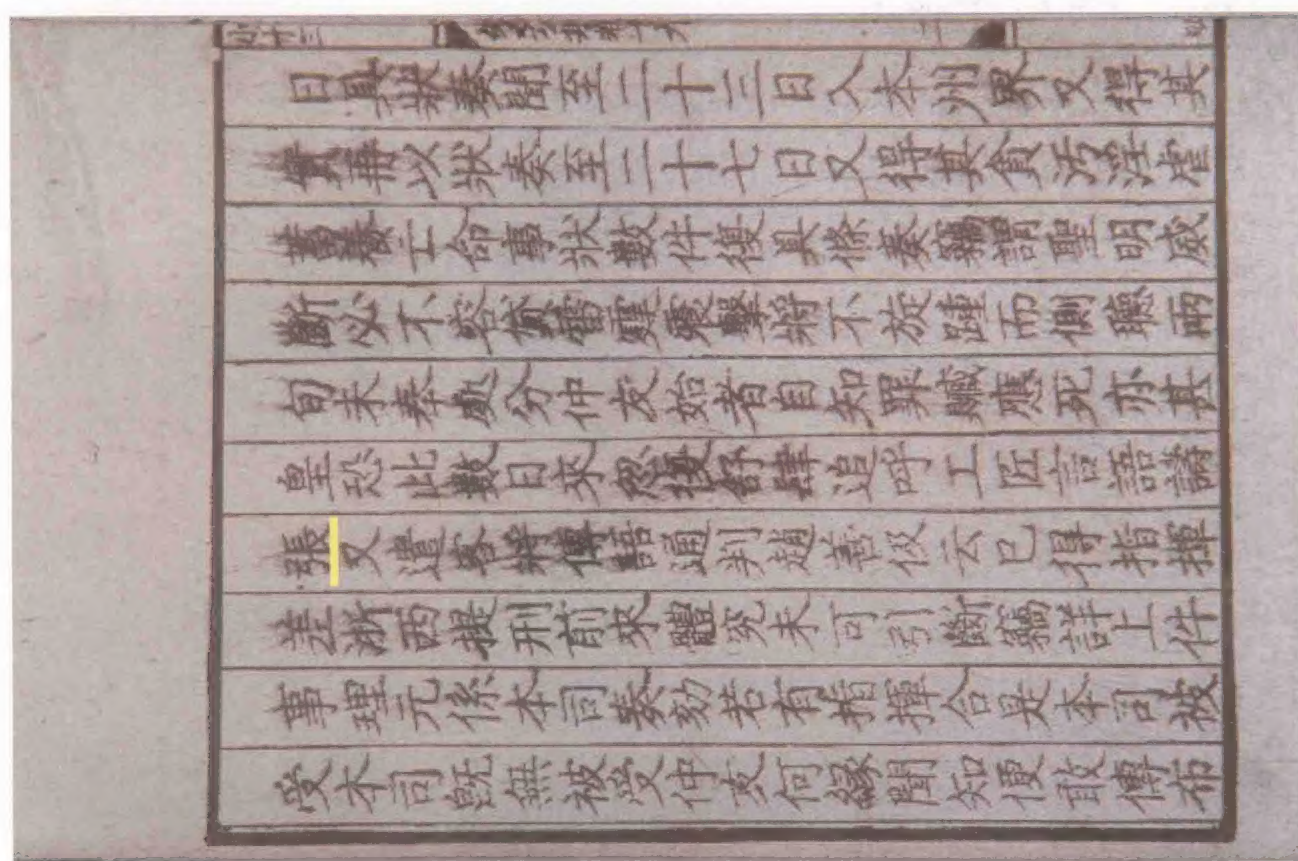 日具狀奏聞至二十三日入本州界又得其
實再以狀奏至二十七日又得其貪污淫虐
蓄養亡命事狀數件復具條奏竊謂聖明威
斷必不容貸雷霆擊將不旋踵而側聽兩
旬未奉處分仲友始者自知罪贓應死亦甚
皇恐比數日來忽復舒肆追呼工匠言語譸
張又遣客將傳語通判趙善伋云已得指揮
差浙西提刑前來體究未可引斷竊詳上件
事理元係本司奏劾若有指揮合是本司被
受本司既無被受仲友何緣聞知便敢傳布